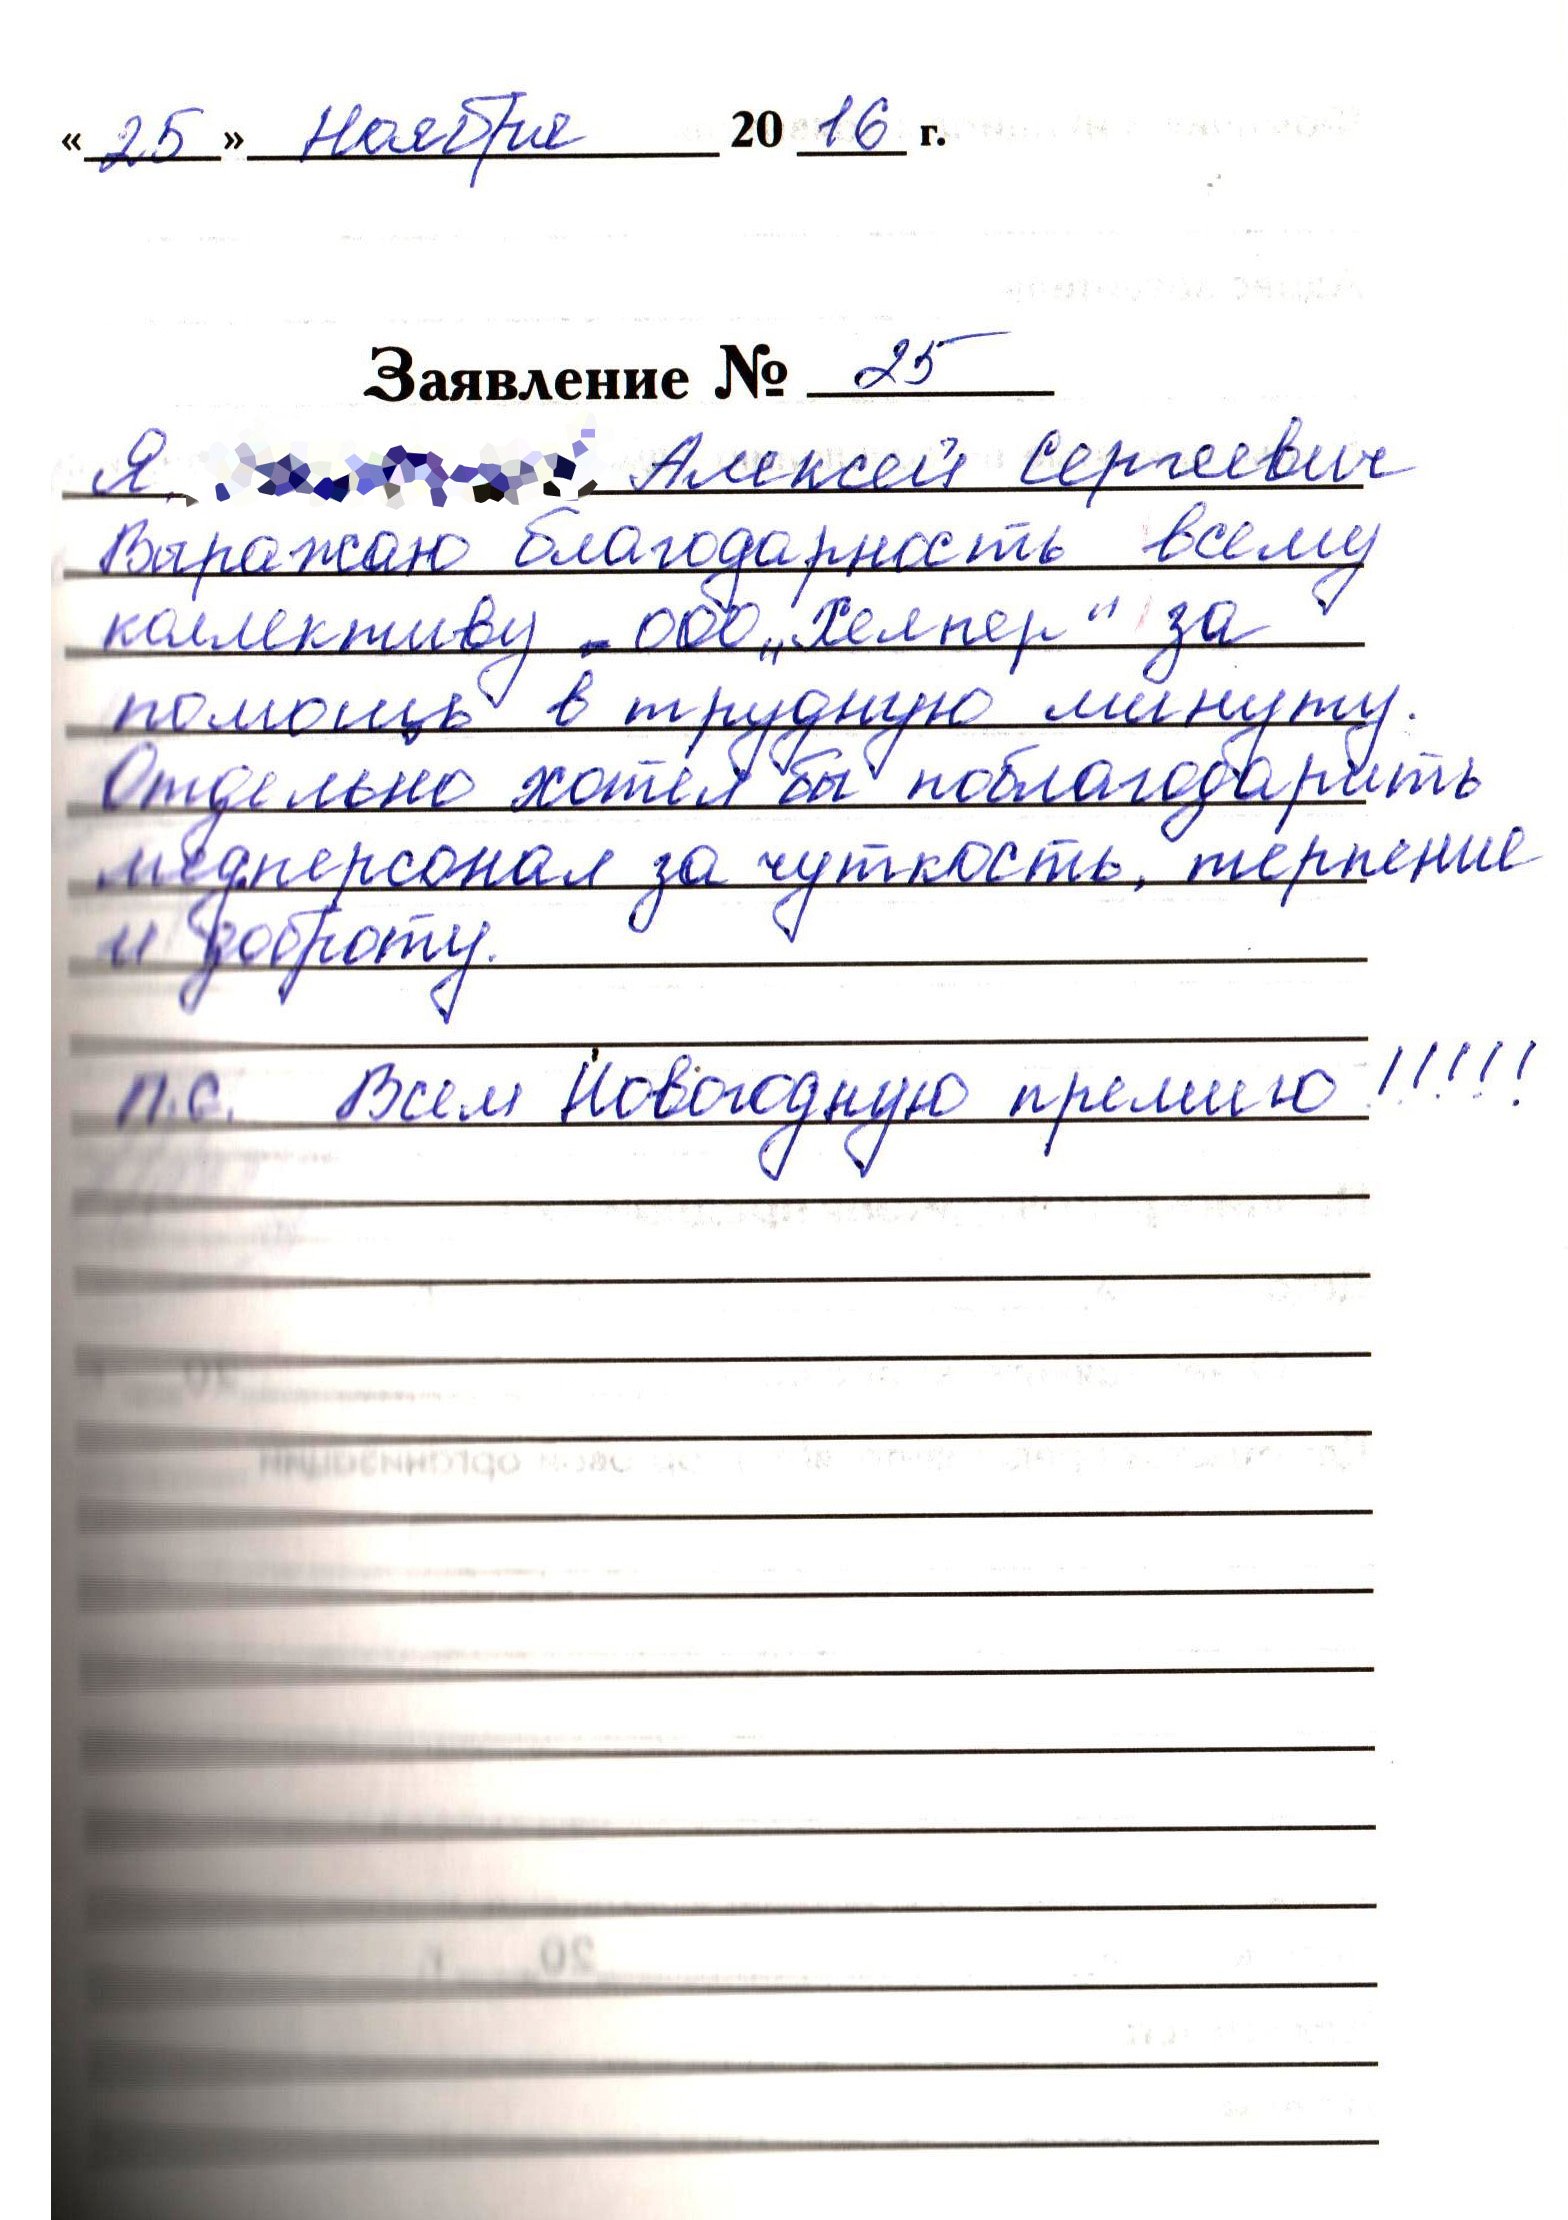 « 25 » Ноября 20 16 г.
Заявление № 25
Я, Алексей Сергеевич
Выражаю благодарность всему
коллективу - ООО „Хелпер“ за
помощь в трудную минуту.
Отдельно хотел бы поблагодарить
медперсонал за чуткость, терпение
и доброту.
П.С. Всем Новогоднюю премию !!!!!